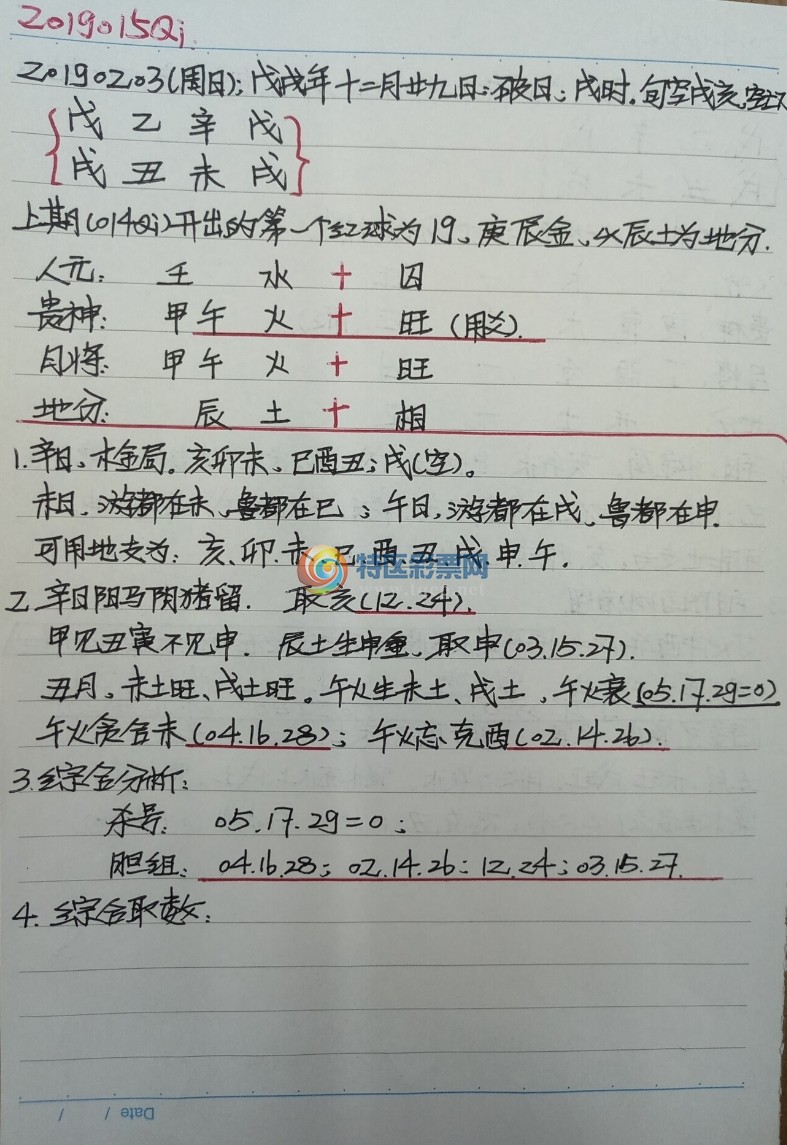 2019015Qi.
20190203(周日);戊戌年十二月廿九日;破日;戌时.旬空戌亥.
戊 乙 辛 戊
戌 丑 未 戌
上期(014Qi)开出的第一个红球为19、庚辰金、以辰土为地分.
人元: 壬 水 + 囚
贵神: 甲午 火 + 旺 (用爻).
月将: 甲午 火 + 旺
地分: 辰 土 + 相
1.辛日、木金局。亥卯未、巳酉丑;戌(空)。
未日、游都在未、鲁都在巳;午日、游都在戌、鲁都在申.
可用地支为:亥、卯.未、巳、酉.丑、戌.申.午.
特区彩票网
2.辛日阳马阴猪留. 取亥(12.24).
甲见丑寅不见申. 辰土生申金,取申(03.15.27).
丑月、未土旺、戌土旺。午火生未土、戌土,午火衰(05.17.29=0)
午火贪合未(04.16.28); 午火忘克酉(02.14.26).
3.综合分析:
杀号: 05.17.29=0;
胆组: 04.16.28; 02.14.26; 12.24; 03.15.27.
4.综合取数:
Date / /